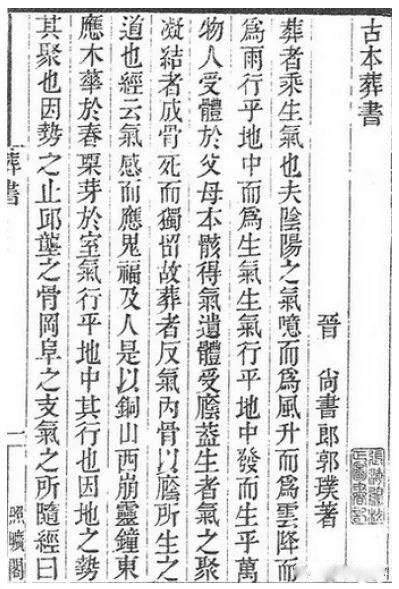 古本葬書
晉 尙書郎郭璞著
葬者乘生氣也夫陰陽之氣噫而爲風升而爲雲降而
爲雨行乎地中而爲生氣生氣行乎地中發而生乎萬
物人受體於父母本骸得氣遺體受廕蓋生者氣之聚
凝結者成骨死而獨留故葬者反氣內骨以廕所生之
道也經云氣感而應鬼福及人是以銅山西崩靈鐘東
應木華於春栗芽於室氣行乎地中其行也因地之勢
其聚也因勢之止邱壟之骨岡阜之支氣之所隨經曰
葬書
一
照曠閣